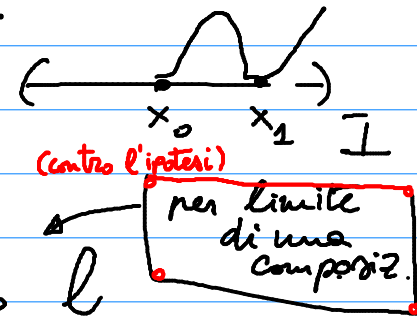 x₀ x₁ I
(contro l'ipotesi)
per limite
di una
composiz.
l